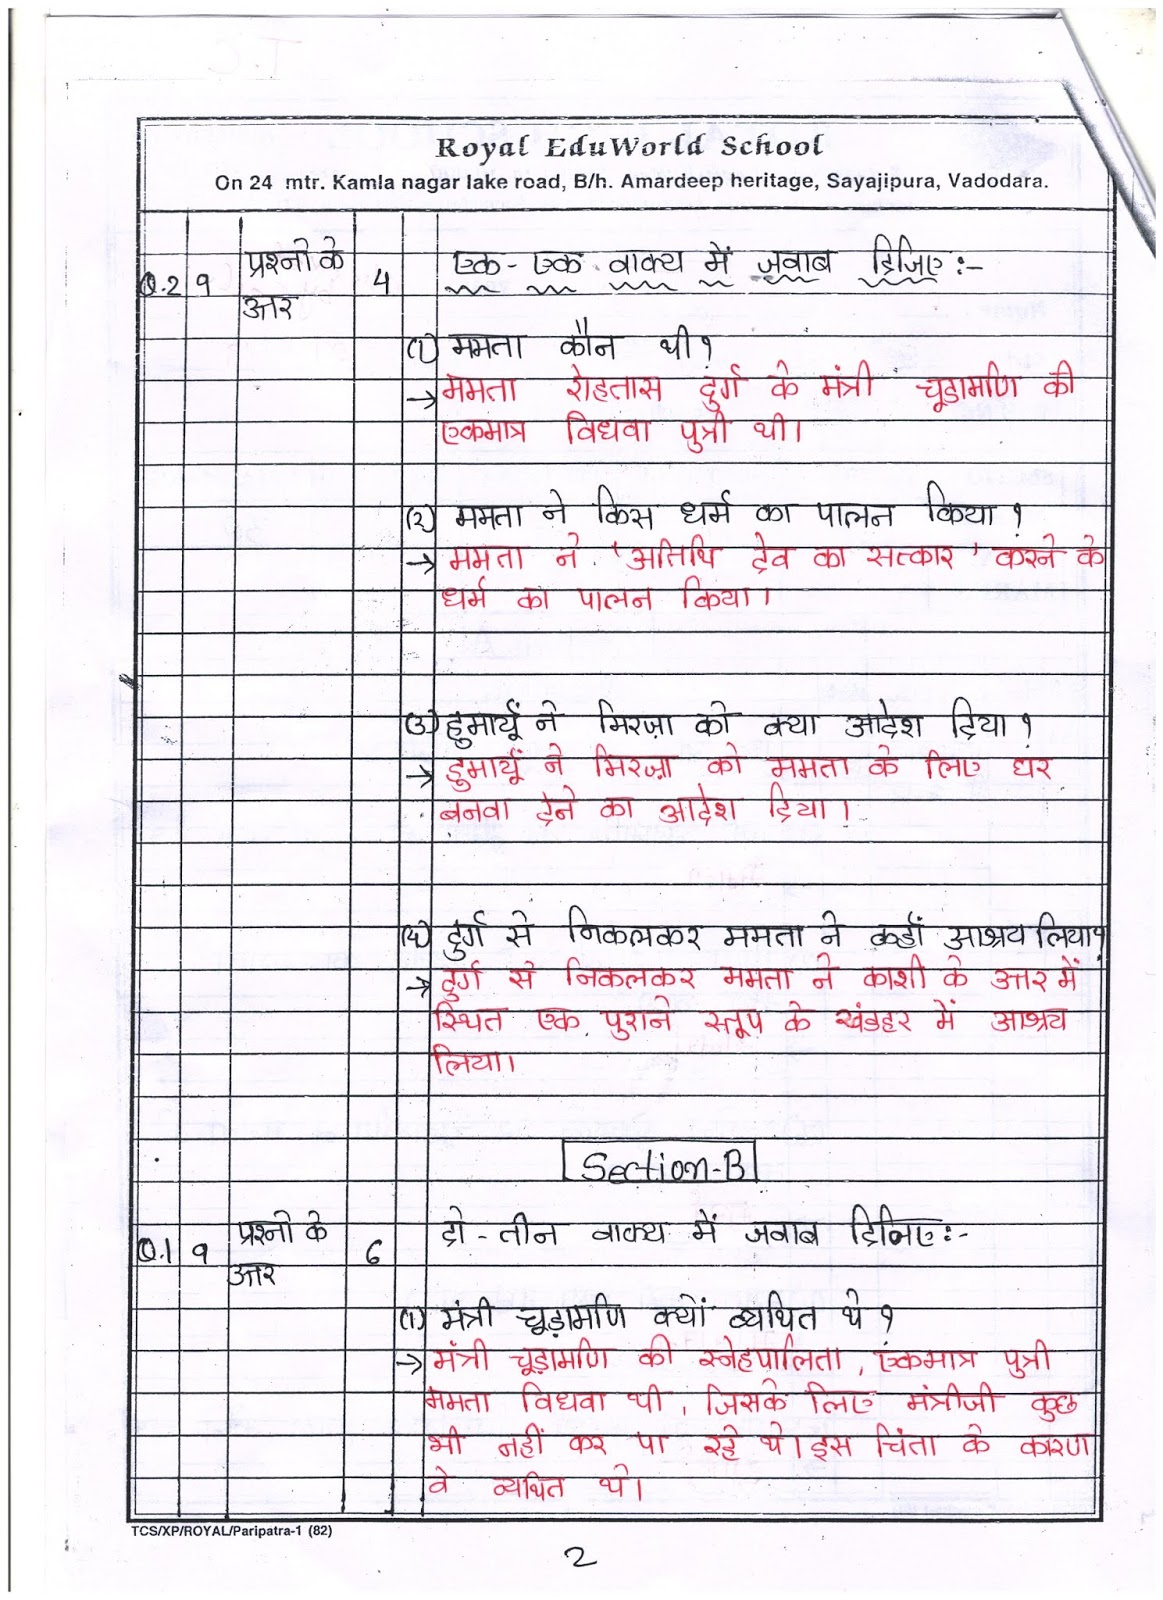 Royal EduWorld School
On 24 mtr. Kamla nagar lake road, B/h. Amardeep heritage, Sayajipura, Vadodara.
Q.2 9 प्रश्नो के उत्तर 4 एक-एक वाक्य में जवाब दिजिए :-
(1) ममता कौन थी?
→ ममता रोहतास दुर्ग के मंत्री चूडामणि की
एकमात्र विधवा पुत्री थी।
(2) ममता ने किस धर्म का पालन किया?
→ ममता ने 'अतिथि देव का सत्कार' करने के
धर्म का पालन किया।
(3) हुमायूँ ने मिरज़ा को क्या आदेश दिया?
→ हुमायूँ ने मिरज़ा को ममता के लिए घर
बनवा देने का आदेश दिया।
(4) दुर्ग से निकलकर ममता ने कहाँ आश्रय लिया?
→ दुर्ग से निकलकर ममता ने काशी के उत्तर में
स्थित एक पुराने स्तूप के खंडहर में आश्रय
लिया।
Section-B
Q.1 9 प्रश्नो के उत्तर 6 दो-तीन वाक्य में जवाब दिजिए :-
(1) मंत्री चूड़ामणि क्यों व्यथित थे?
→ मंत्री चूड़ामणि की स्नेहपालिता, एकमात्र पुत्री
ममता विधवा थी, जिसके लिए मंत्रीजी कुछ
भी नहीं कर पा रहे थे। इस चिंता के कारण
वे व्यथित थे।
TCS/XP/ROYAL/Paripatra-1 (82)
2